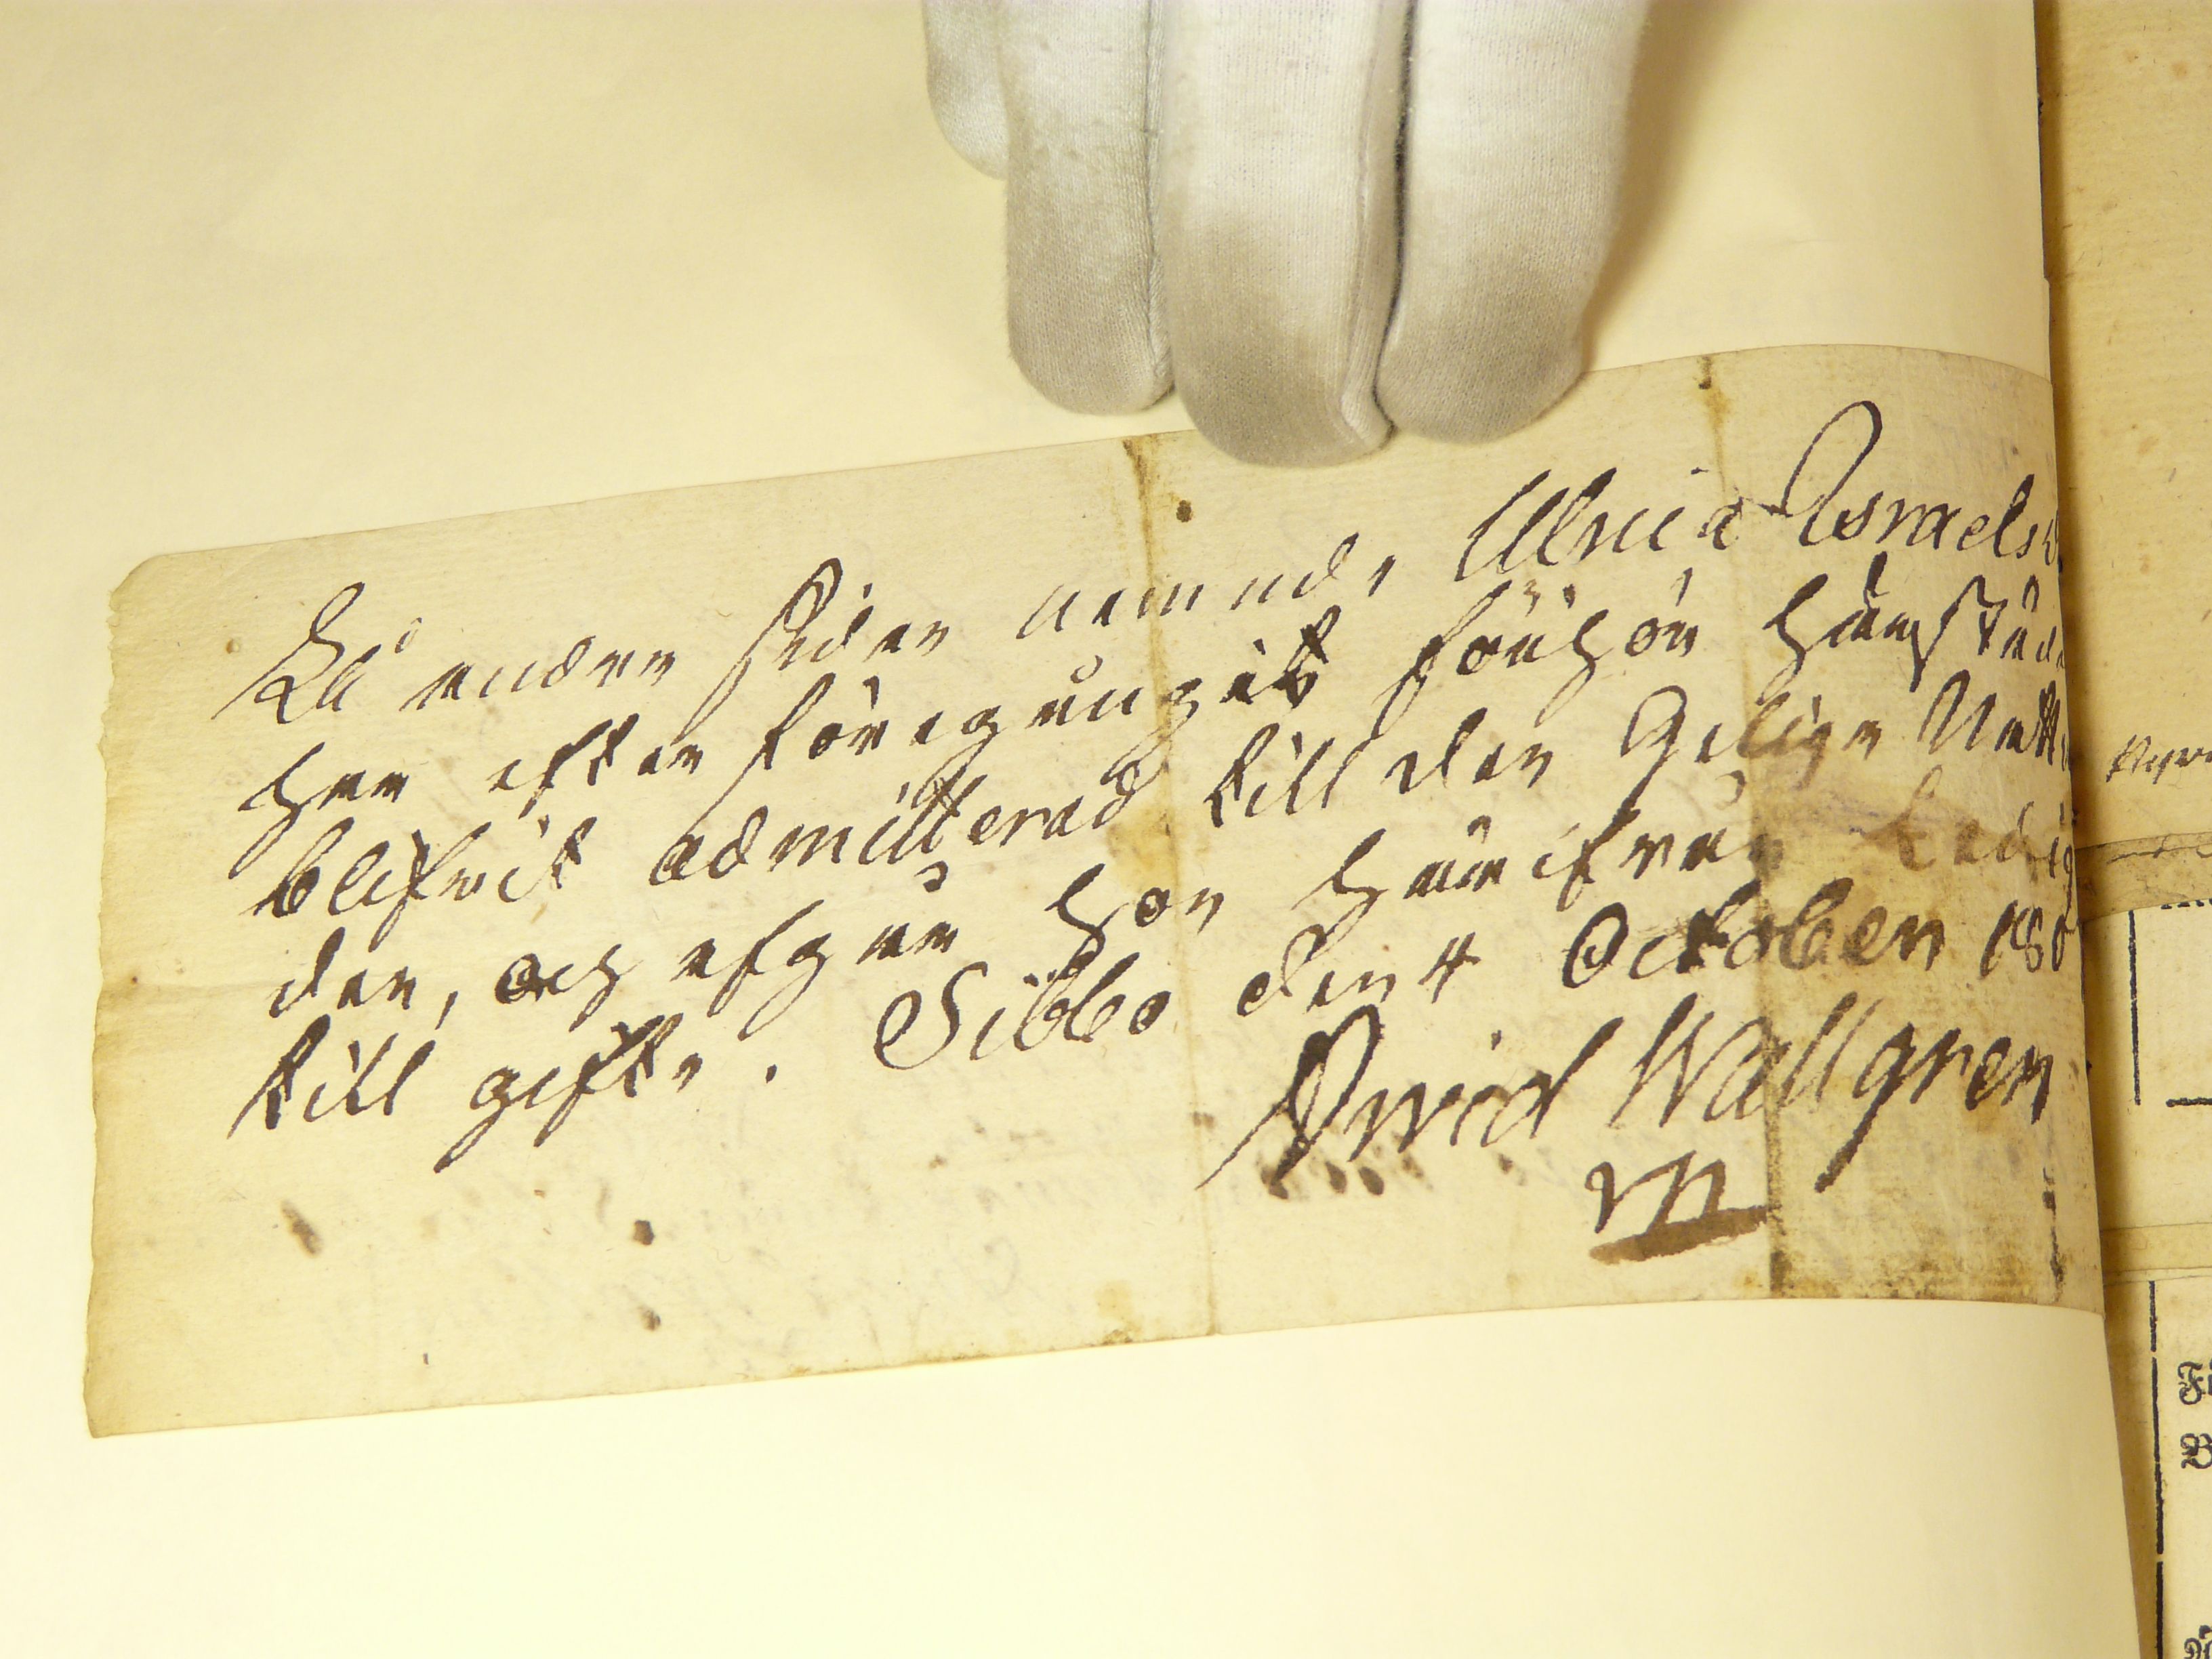 På andra sidan nämnde Ulrica Israels
har efter föregånget förhör härstäde
blifvit admitterad till den Heliga Natt
den, och afgår hon härifrån ledig
till gifte. Sibbo den 4 October 180
Arvid Wallgren